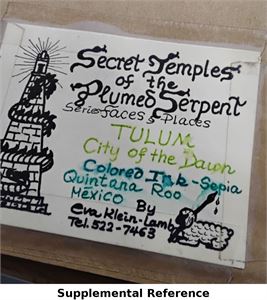 Secret Temples
of the
Plumed Serpent
Series Faces & Places
TULUM
City of the Dawn
Colored Ink - Sepia
Quintana Roo
Mexico By
Eva Klein-Lamb
Tel. 522-7463
Supplemental Reference